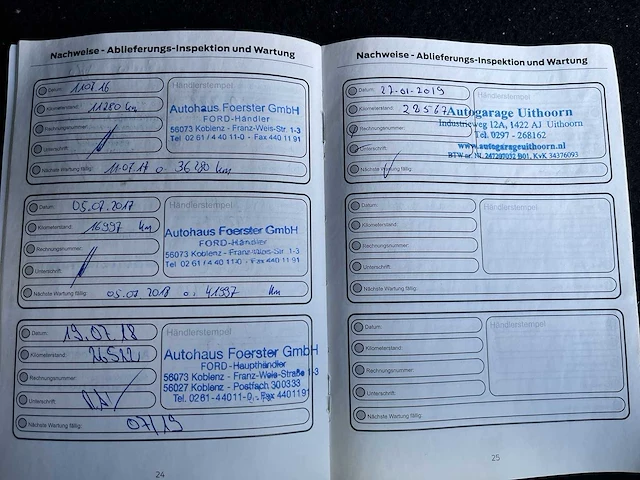 Nachweise - Ablieferungs-Inspektion und Wartung
Datum: 11.07.16
Händlerstempel
Kilometerstand: 11280 km
Rechnungsnummer:
Unterschrift:
Autohaus Foerster GmbH
FORD-Händler
56073 Koblenz - Franz-Weis-Str. 1-3
Tel. 02 61 / 4 40 11-0 - Fax 440 11 91
Nächste Wartung fällig: 11.07.17 o. 36280 km
Datum: 05.07.2017
Händlerstempel
Kilometerstand: 16997 km
Rechnungsnummer:
Unterschrift:
Autohaus Foerster GmbH
FORD-Händler
56073 Koblenz - Franz-Weis-Str. 1-3
Tel. 02 61 / 4 40 11-0 - Fax 440 11 91
Nächste Wartung fällig: 05.07.2018 o. 41997 km
Datum: 19.07.18
Händlerstempel
Kilometerstand:
Rechnungsnummer:
Unterschrift:
Autohaus Foerster GmbH
FORD-Haupthändler
56073 Koblenz - Franz-Weis-Straße 1-3
56027 Koblenz - Postfach 300333
Tel. 0261-44011-0 - Fax 4401191
Nächste Wartung fällig: 07/19
24
Nachweise - Ablieferungs-Inspektion und Wartung
Datum: 27-01-2019
Händlerstempel
Kilometerstand: 28567
Rechnungsnummer:
Unterschrift:
Autogarage Uithoorn
Industrieweg 12A, 1422 AJ Uithoorn
Tel. 0297 - 268162
www.autogarageuithoorn.nl
BTW nr. NL 247207052 B01, KvK 34376093
Nächste Wartung fällig:
Datum:
Händlerstempel
Kilometerstand:
Rechnungsnummer:
Unterschrift:
Nächste Wartung fällig:
Datum:
Händlerstempel
Kilometerstand:
Rechnungsnummer:
Unterschrift:
Nächste Wartung fällig:
25